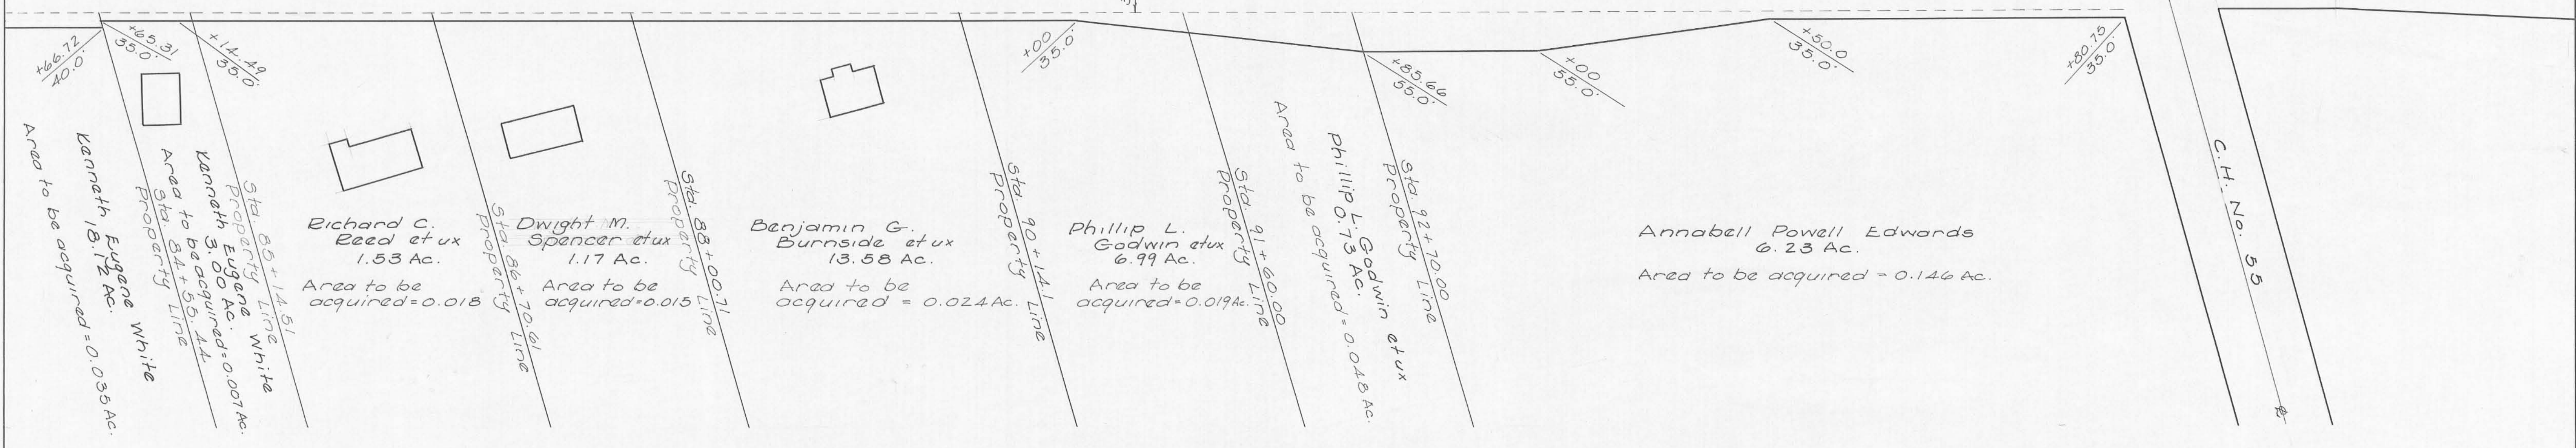 +66.72
40.0'
+65.31
35.0'
+14.49
35.0'
+00
35.0'
+85.66
55.0'
+00
55.0'
+50.0
35.0'
+80.75
35.0'
Kenneth Eugene White
18.12 Ac.
Area to be acquired = 0.035 Ac.
Sta. 84+55.44
Property Line
Kenneth Eugene White
3.00 Ac.
Area to be acquired = 0.007 Ac.
Sta. 85+14.51
Property Line
Richard C.
Reed et ux
1.53 Ac.
Area to be
acquired = 0.018
Sta. 86+70.61
Property Line
Dwight M.
Spencer et ux
1.17 Ac.
Area to be
acquired = 0.015
Sta. 88+00.71
Property Line
Benjamin G.
Burnside et ux
13.58 Ac.
Area to be
acquired = 0.024 Ac.
Sta. 90+14.1
Property Line
Phillip L.
Godwin et ux
6.99 Ac.
Area to be
acquired = 0.019 Ac.
Sta. 91+60.00
Property Line
Phillip L. Godwin et ux
0.73 Ac.
Area to be acquired = 0.048 Ac.
Sta. 92+70.00
Property Line
Annabell Powell Edwards
6.23 Ac.
Area to be acquired = 0.146 Ac.
C.H. No. 55